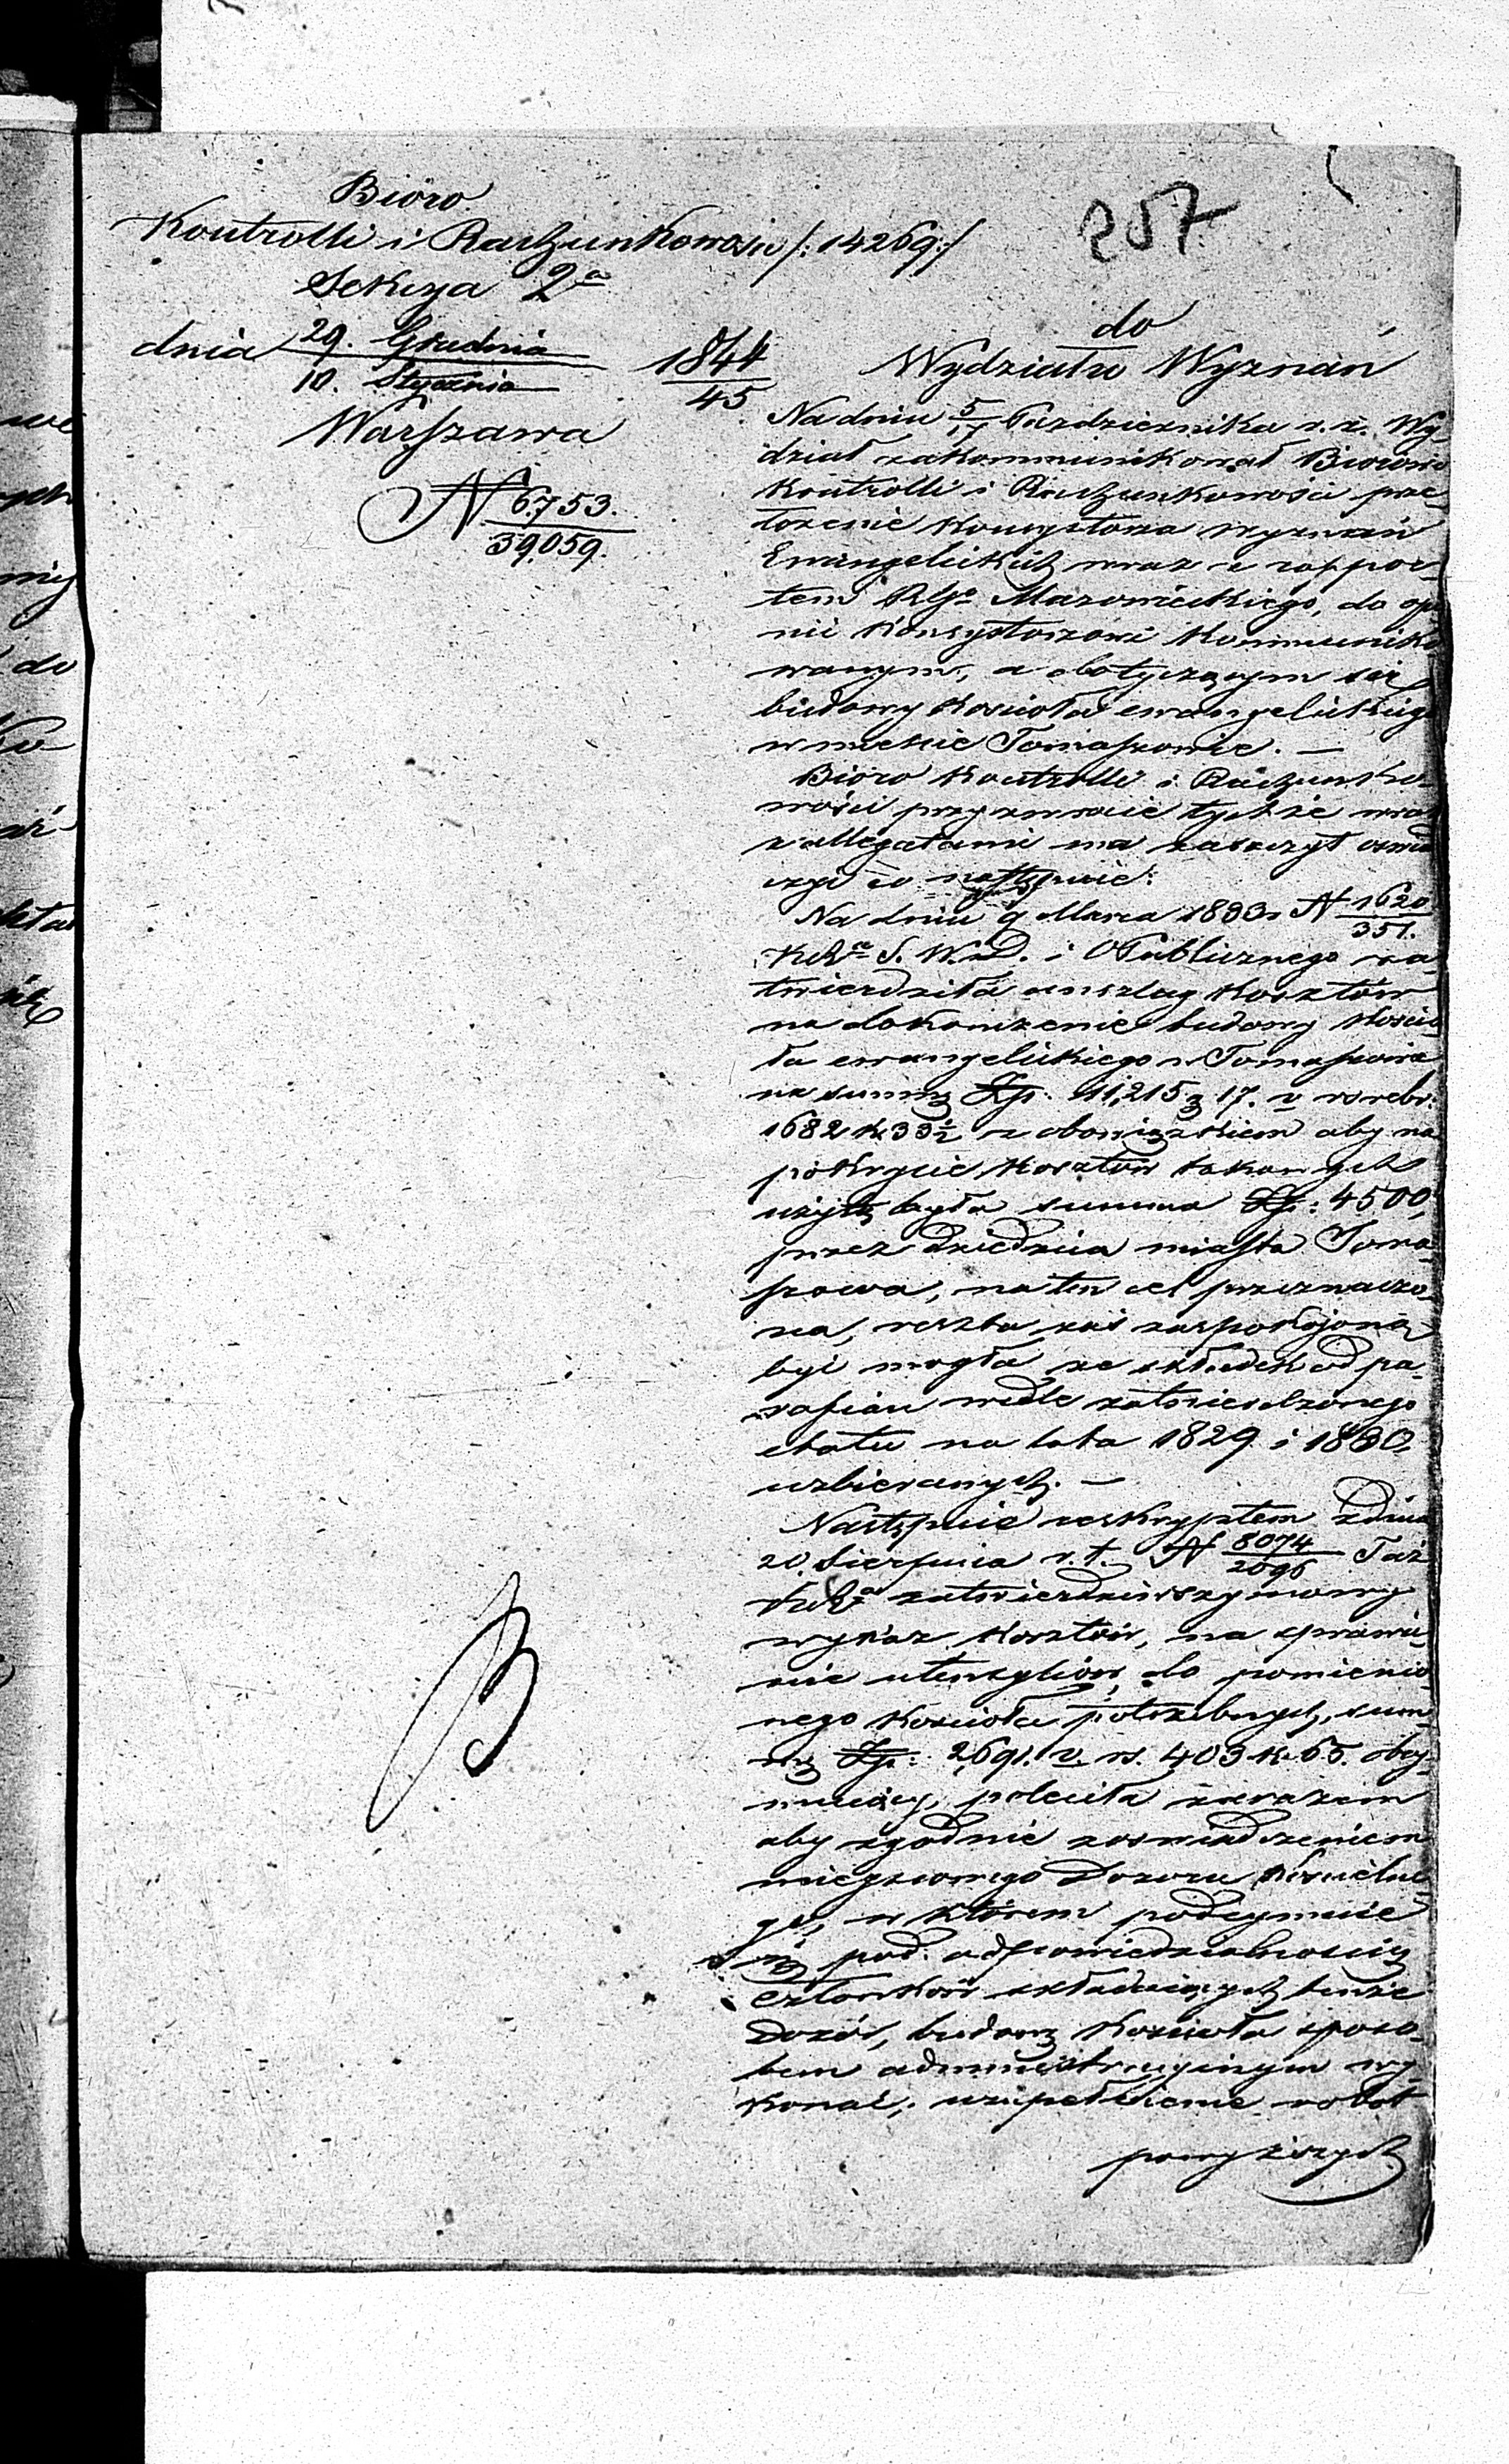 Bióro
Kontrolli i Rachunkowości /:14269:/
Sekcya 2a
dnia 29. Grudnia / 10. Stycznia 1844/45
Warszawa
N 6.753. / 39.059.
257
do
Wydziału Wyznań
Na dniu 5/17 Października r. z. Wy-
dział zakommunikował Biorowi
Kontrolli i Rachunkowości prze-
łożenie Konsystorza wyznań
Ewangelickich wraz z rappor-
tem RGo Mazowieckiego, do opi
nii Konsystorzowi kommuniko
wanym, a dotyczącym się
budowy kościoła ewangelickiego
w mieście Tomaszowie. —
Bióro Kontrolli i Rachunko-
wości przyzwracie tychże wraz
z allegatami ma zaszczyt oświad
czyć co następuie:
Na dniu 9 Marca 1833 r N 1620/351.
KRa S. W. D. i OPublicznego za-
twierdziła anszlag kosztów
na dokończenie budowy kościo
ła ewangelickiego w Tomaszowie
na summę Zp. 11,215 g 17. v rs rebr.
1682 k 33½ z obowiązkiem aby na
pokrycie kosztów takowych
użytą była summa Zp: 4500,
przez dziedzica miasta Toma-
szowa, na ten cel przeznaczo-
na, reszta zaś zaspokojoną
być mogła ze składek od pa-
rafian wedle zatwierdzonego
etatu na lata 1829 i 1830,
uzbieranych. —
Następnie reskryptem z dnia
20. Sierpnia r. t. N 8074/2096 Taż
KRa zatwierdziwszy nowy
wykaz kosztów, na sprawie-
nie utensyliów do pomienio
nego kościoła potrzebnych, sum-
mę Zp: 2,691. v. rs. 403 k. 65. obey-
muiący, poleciła zarazem
aby zgodnie z oświadczeniem
mieyscowego Dozoru kościelne-
go, w którem podeymuie
się pod odpowiedzialnością
członków składaiących tenże
Dozór, budowę kościoła sposo-
bem administracyinym wy-
konać, uzupełnienie robot
powyższych